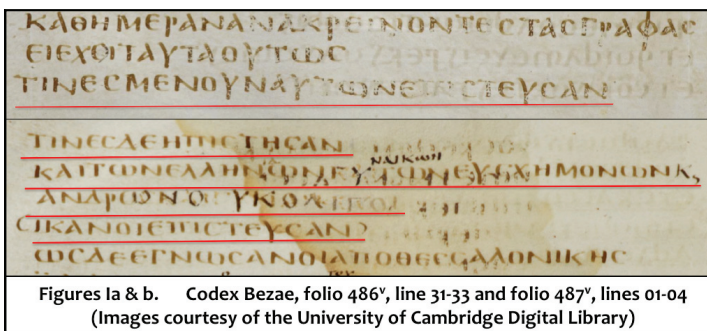 ΚΑΘΗΜΕΡΑΝΑΝΑΚΡΕΙΝΟΝΤΕϹΤΑϹΓΡΑΦΑϹ
ΕΙΕΧΟΙΤΑΥΤΑΟΥΤΩϹ
ΤΙΝΕϹΜΕΝΟΥΝΑΥΤΩΝΕΠΙϹΤΕΥϹΑΝ
ΤΙΝΕϹΔΕΗΠΙϹΤΗϹΑΝ
ΚΑΙΤΩΝΕΛΛΗΝΩΝ ΤΩΝΕΥϹΧΗΜΟΝΩΝΚ,
ΑΝΔΡΩΝΟΥΚΟΛ
ΙΚΑΝΟΙΕΠΙϹΤΕΥϹΑΝ
ΩϹΔΕΕΓΝΩϹΑΝΟΙΑΠΟΘΕϹϹΑΛΟΝΙΚΗϹ
Figures Ia & b. Codex Bezae, folio 486ᵛ, line 31-33 and folio 487ᵛ, lines 01-04
(Images courtesy of the University of Cambridge Digital Library)